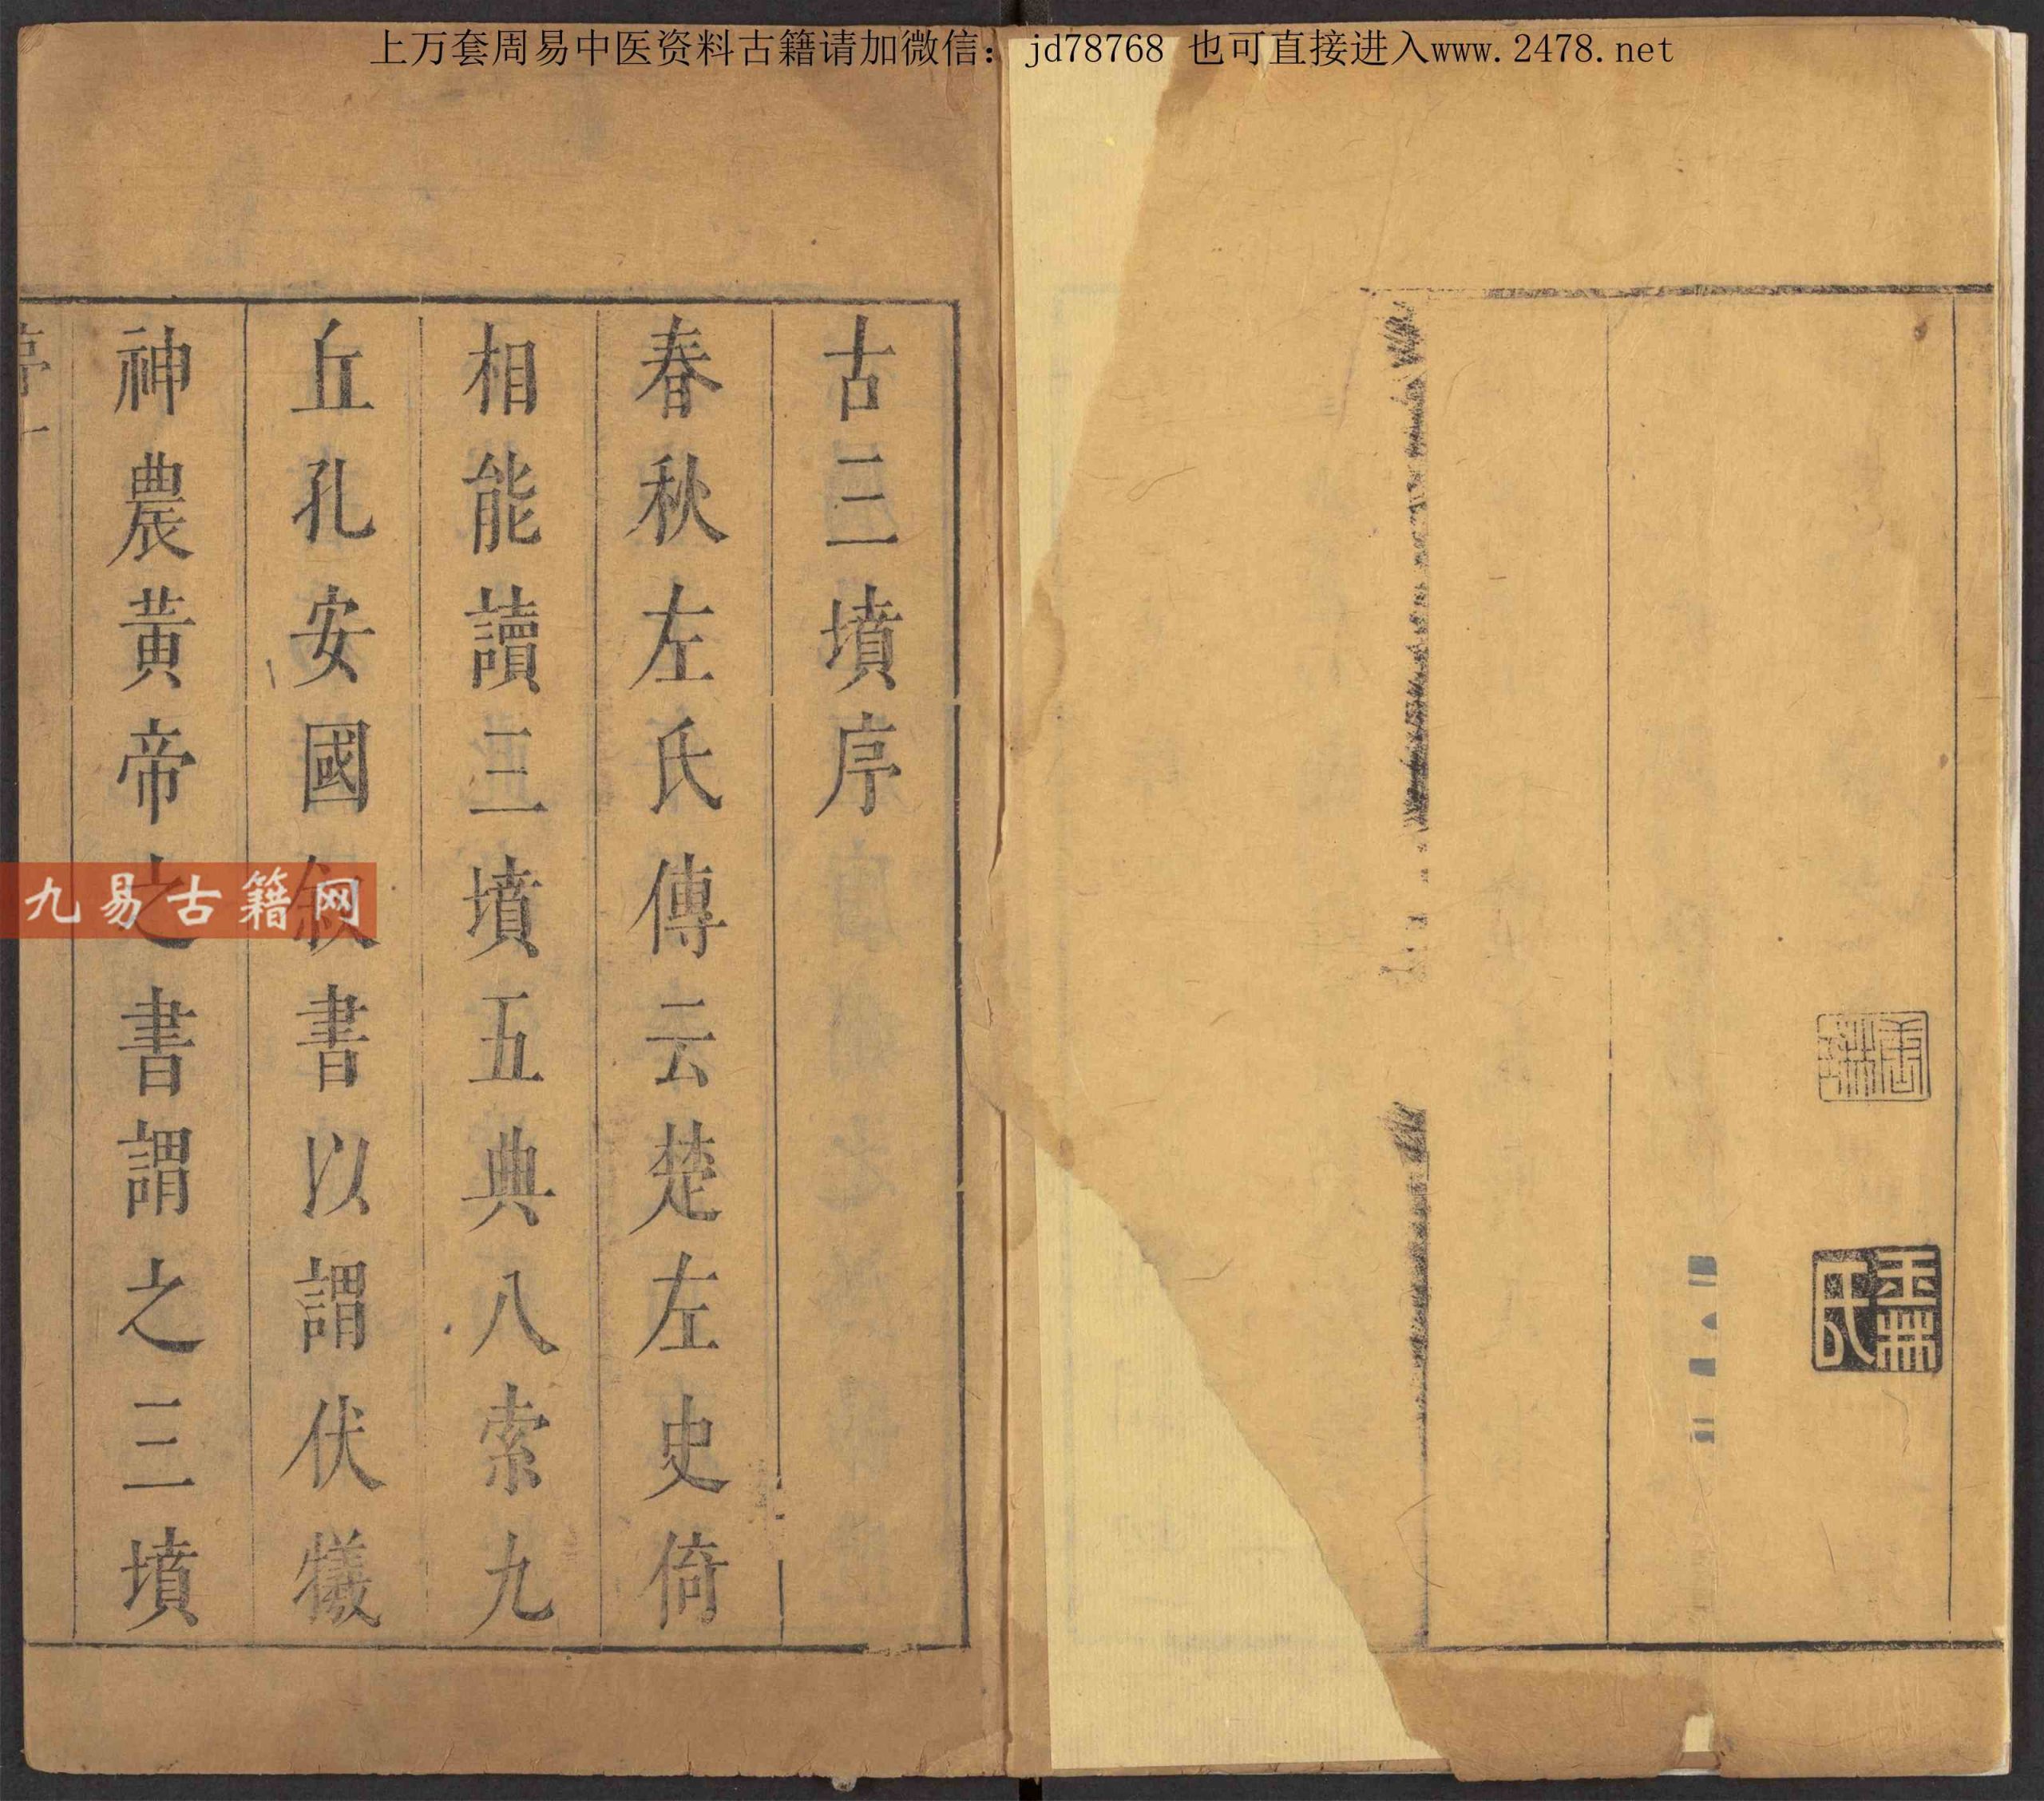 上万套周易中医资料古籍请加微信: jd78768 也可直接进入www.2478.net
古三墳序
春秋左氏傳云楚左史倚
相能讀三墳五典八索九
丘孔安國叙書以謂伏犧
神農黃帝之書謂之三墳
序一
九易古籍网